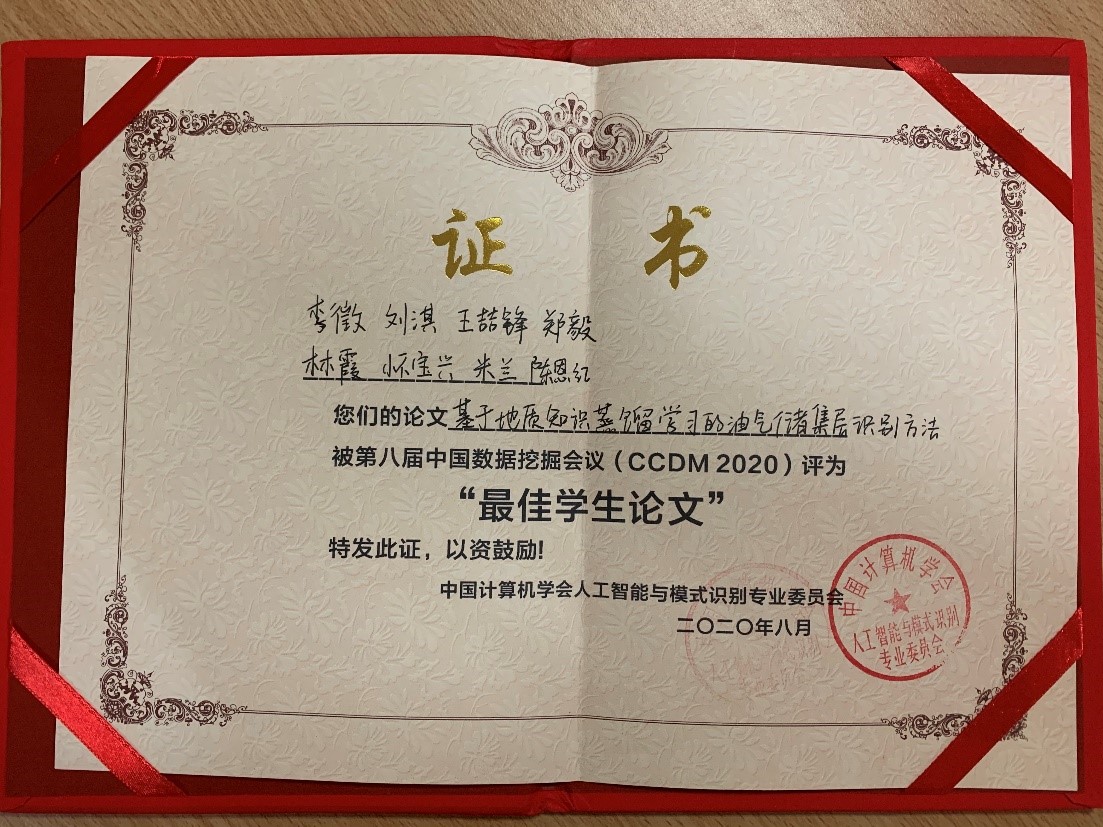 证 书
李徵 刘淇 王喆锋 郑毅
林霞 怀宝兴 米兰 陈恩红
您们的论文 基于地质知识蒸馏学习的油气储集层识别方法
被第八届中国数据挖掘会议(CCDM 2020)评为
“最佳学生论文”
特发此证,以资鼓励!
中国计算机学会人工智能与模式识别专业委员会
二〇二〇年八月
中国计算机学会
人工智能与模式识别
专业委员会